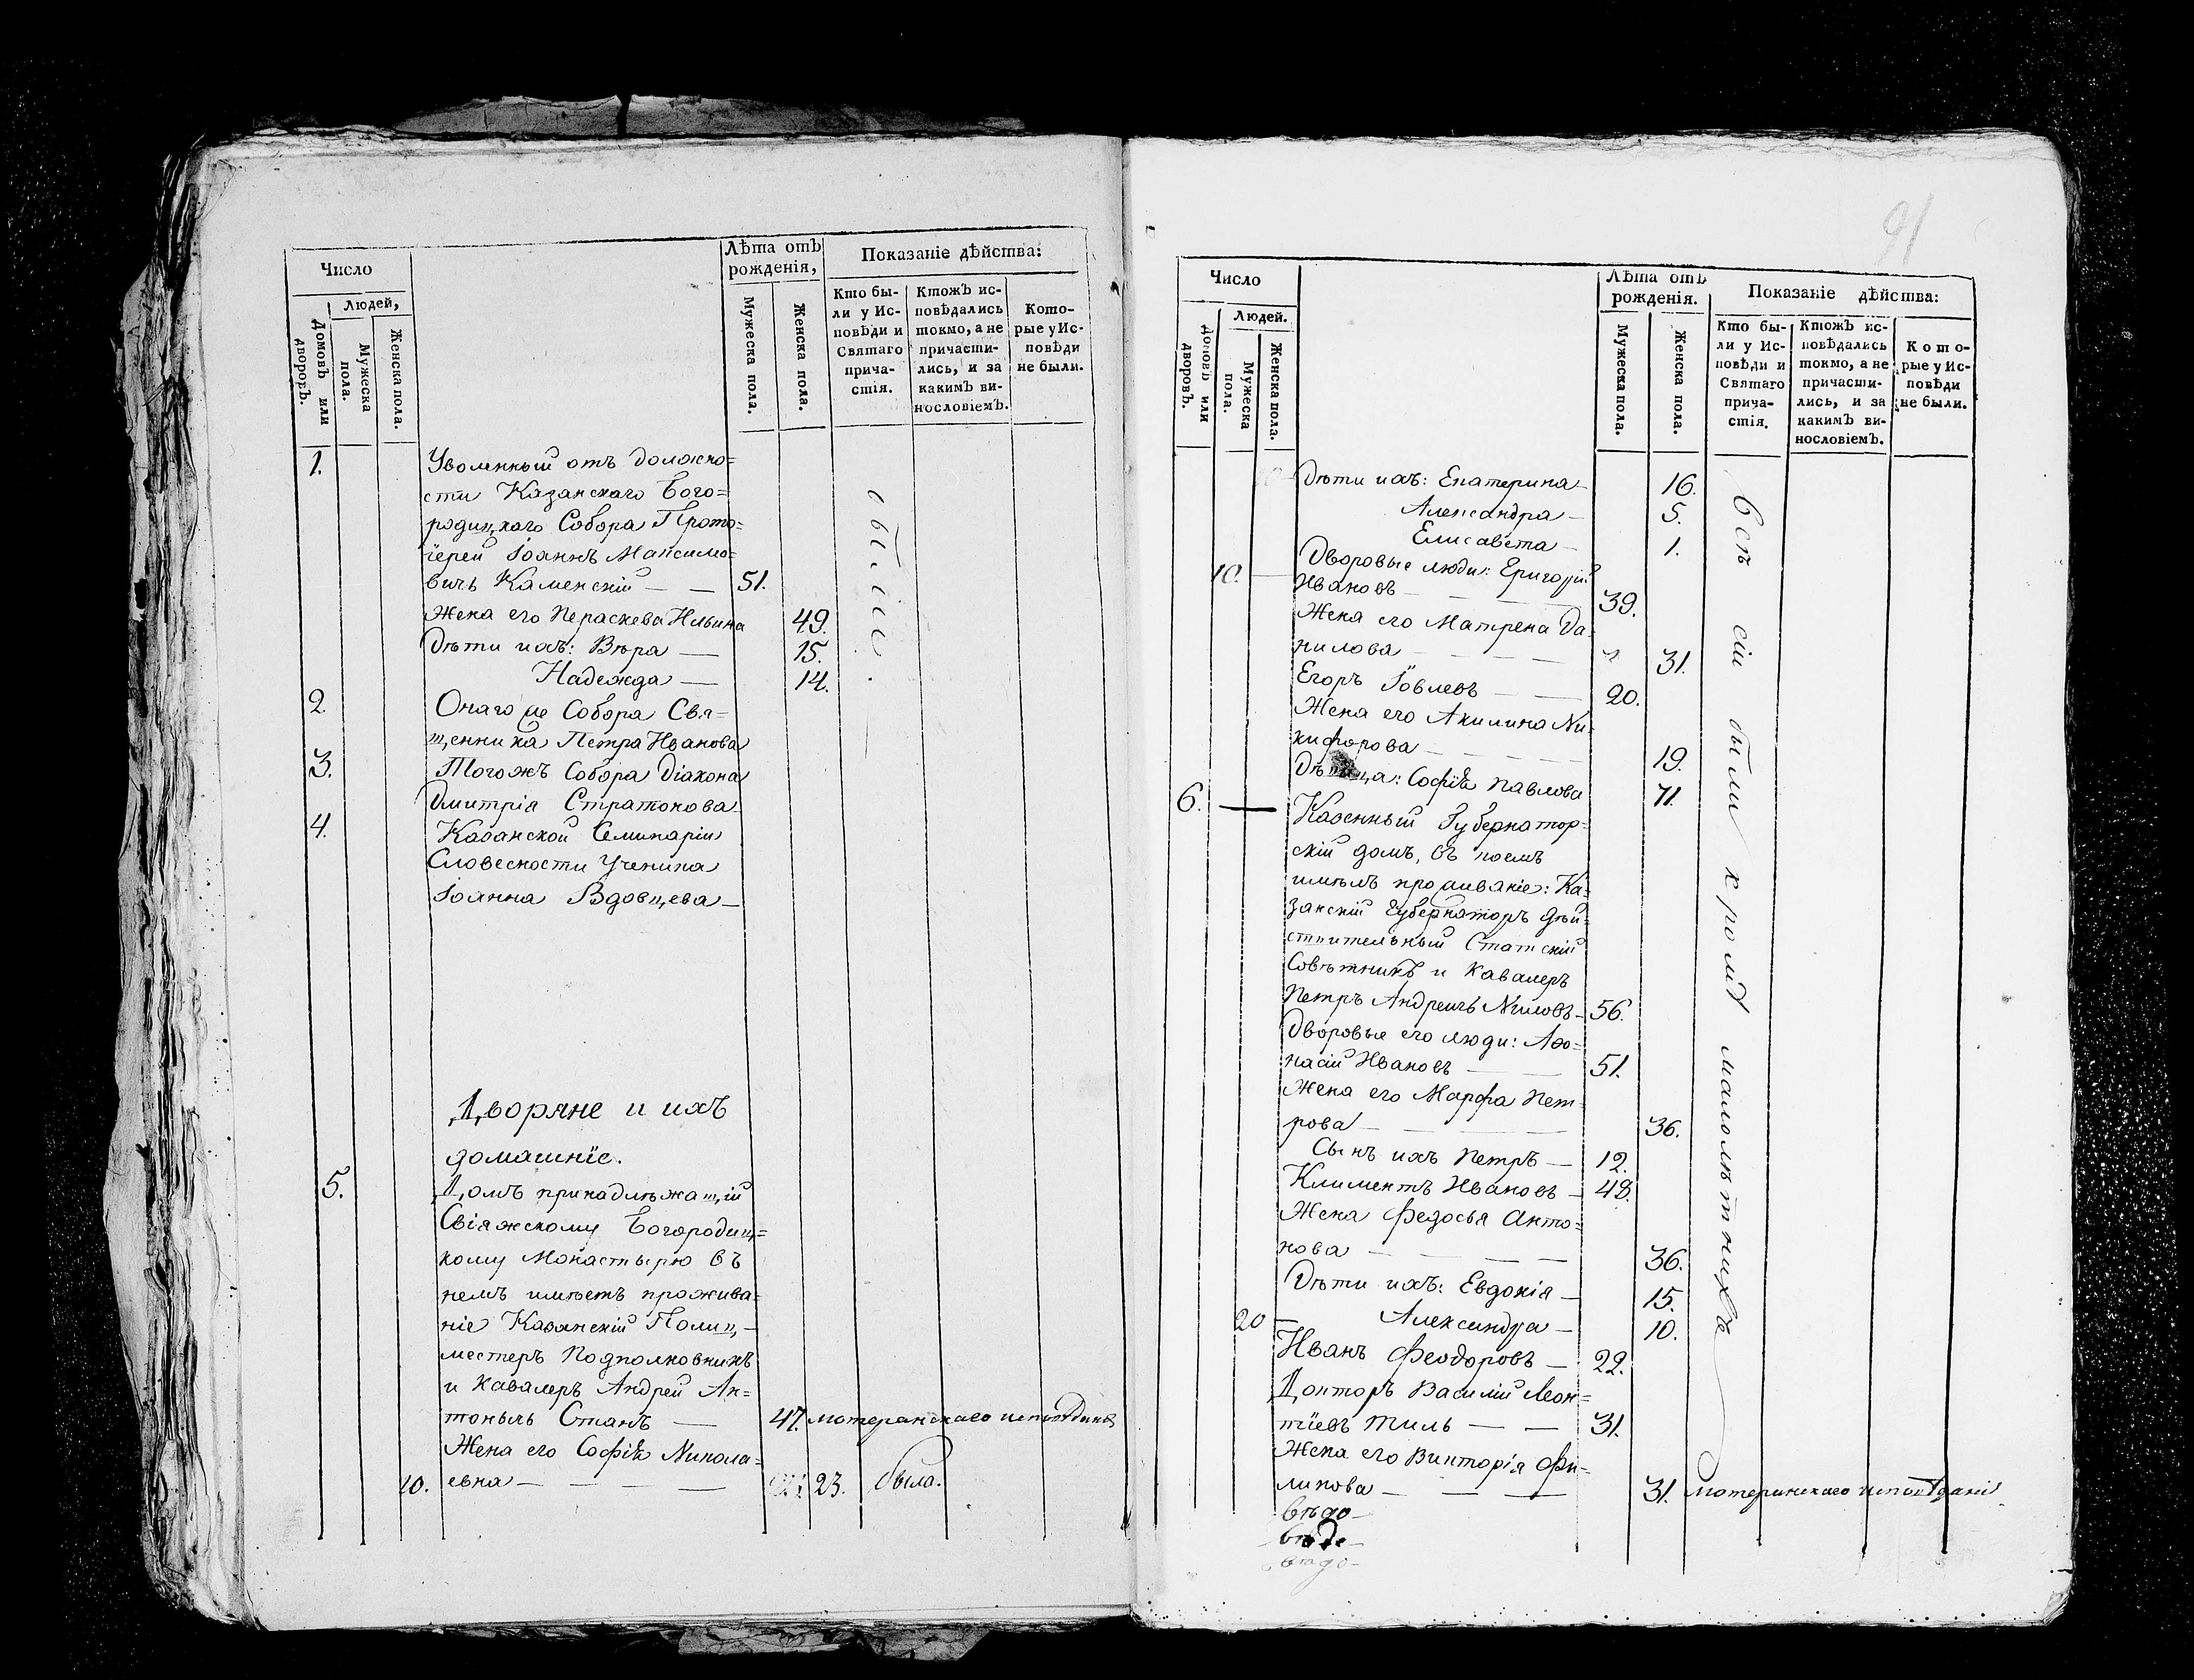 Число
Людей,
Домовъ или дворовъ.
Мужеска пола.
Женска пола.
Лѣта отъ рожденія,
Мужеска пола.
Женска пола.
Показаніе дѣйства:
Кто бы-
ли у Ис-
повѣди и
Святаго
прича-
стія.
Ктожъ ис-
повѣдались
токмо, а не
причасти-
лись, и за
какимъ ви-
нословіемъ.
Кото-
рые у Ис-
повѣди
не были.
1. Уволенный отъ должно=
сти Казанскаго Бого=
родицкаго Собора Прото=
іерей Іоаннъ Максимо=
вичь Каменскій — — 51.
Жена его Параскева Ильина 49.
Дѣти ихъ: Вѣра — 15.
Надежда — 14.
были.
2. Онаго же Собора Свя=
щенника Петра Иванова
3. Тогожъ Собора Діакона
Дмитрія Стратонова
4. Казанской Семинаріи
Словесности Ученика
Іоанна Вдовцева —
Дворяне и ихъ
домашніе.
5. Домъ принадлѣжащій
Свіяжскому Богородиц=
кому Монастырю въ
немъ имѣетъ прожива=
ніе Казанскій Полиц=
меетеръ Подполковникъ
и Кавалеръ Андрей Ан=
тоновъ Станъ — 47. лютеранскаго исповѣданія
Жена его Софія Никола=
10. евна — — — — 23. была.
91
Число
Людей.
Домовъ или дворовъ.
Мужеска пола.
Женска пола.
Лѣта отъ рожденія.
Мужеска пола.
Женска пола.
Показаніе дѣйства:
Кто бы-
ли у Ис-
повѣди и
Святаго
прича-
стія.
Ктожъ ис-
повѣдались
токмо, а не
причасти-
лись, и за
какимъ ви-
нословіемъ.
Кото-
рые у Ис-
повѣди
не были.
Дѣти ихъ: Екатерина — 16.
Александра — 5.
Елисавета — 1.
10. — Дворовые люди: Григорій
Ивановъ — — — 39.
Жена его Матрена Да=
нилова — — — — 31.
Егоръ Іовлевъ — — 20.
Жена его Акилина Ни=
кифорова — — — 19.
Дѣвица: Софія Павлова 71.
6. — Казенный Губернатор=
скій домъ, въ коемъ
имѣлъ проживаніе: Ка=
занскій Губернаторъ Дѣй=
ствительный Статскій
Совѣтникъ и Кавалеръ
Петръ Андреичь Ниловъ — 56.
Дворовые его люди: Афо=
насій Ивановъ — — 51.
Жена его Марфа Пет=
рова — — — — 36.
Сынъ ихъ Петръ — 12.
Климентъ Ивановъ — 48.
Жена Федосья Анто=
нова — — — — 36.
Дѣти ихъ: Евдокія — 15.
20 — Александра — 10.
Иванъ Феодоровъ — 22.
Докторъ Василій Леон=
тіевъ Тиль — — 31.
Жена его Викторія Фи=
липова — — — 31. лютеранскаго исповѣданія
всѣ сіи были кромѣ малолѣтнихъ